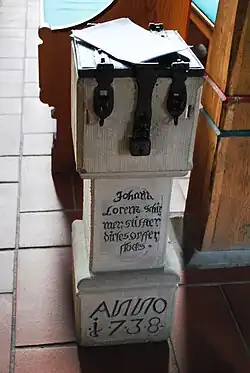 Johann
Lorenz Schir
mer stiffter
dieses opffer
stocks
ANNO
1738